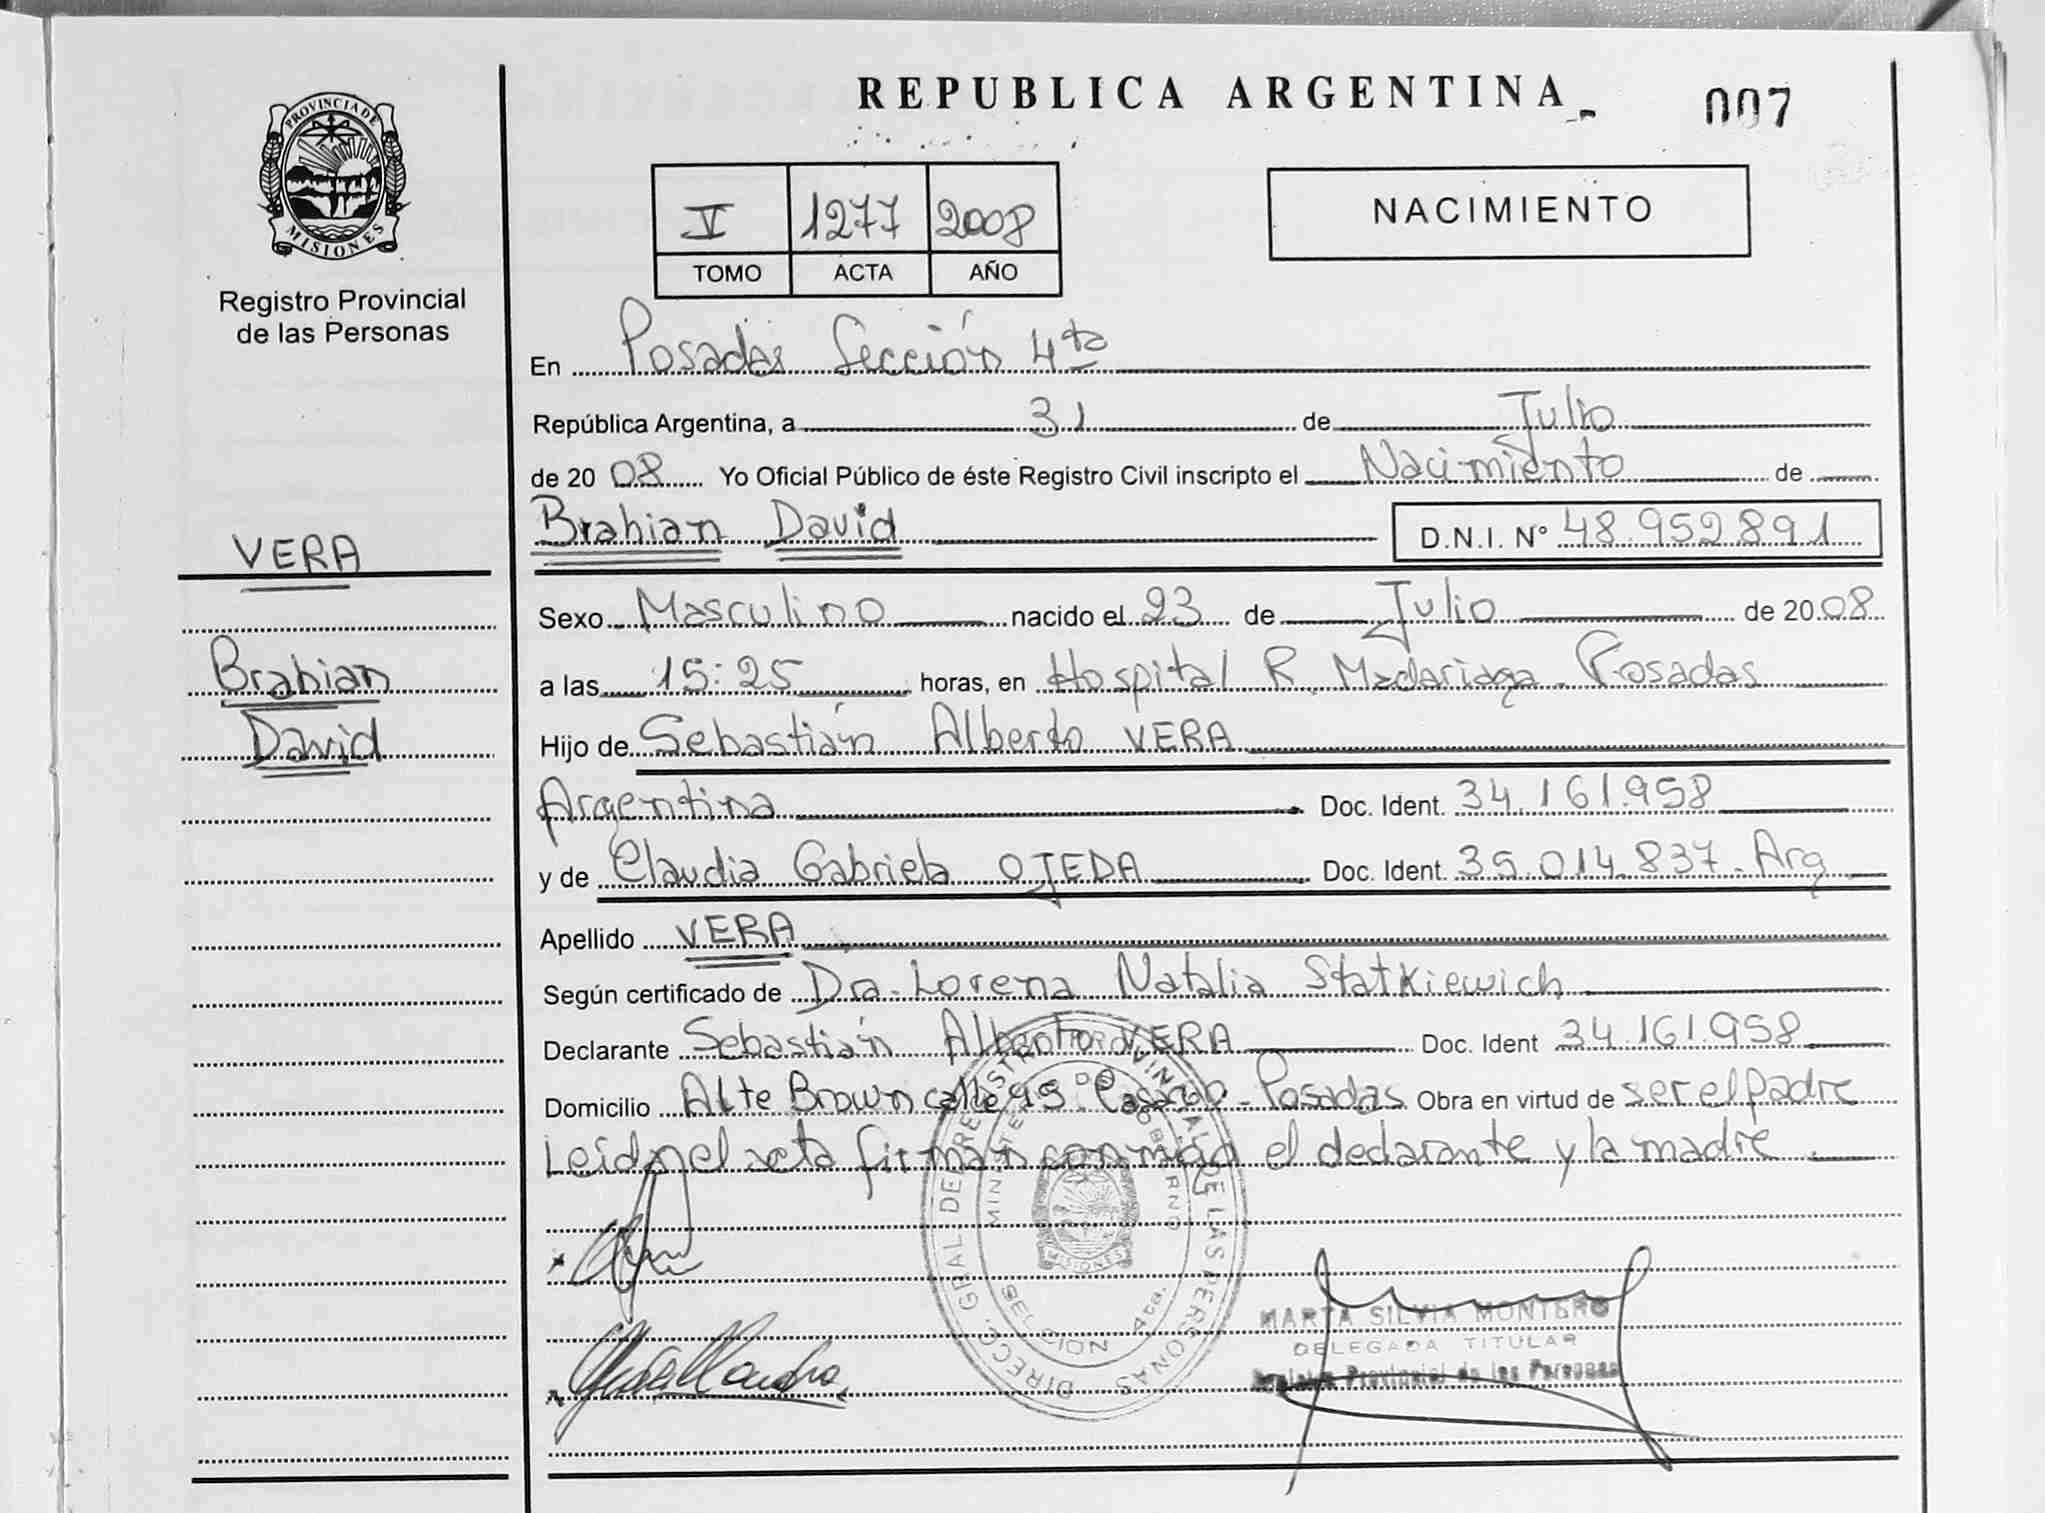 REPUBLICA ARGENTINA
007
PROVINCIA DE
MISIONES
Registro Provincial
de las Personas
V 1277 2008
TOMO ACTA AÑO
NACIMIENTO
En Posadas Sección 4ta
República Argentina, a 31 de Julio
de 20 08 Yo Oficial Público de éste Registro Civil inscripto el Nacimiento de
Brahian David D.N.I. N° 48.952891
VERA
Brahian
David
Sexo Masculino nacido el 23 de Julio de 20 08
a las 15:25 horas, en Hospital R. Madariaga - Posadas
Hijo de Sebastián Alberto VERA
Argentina Doc. Ident. 34.161.958
y de Claudia Gabriela OJEDA Doc. Ident. 35.014.837 - Arg
Apellido VERA
Según certificado de Dra. Lorena Natalia Statkiewich
Declarante Sebastián Alberto VERA Doc. Ident 34.161.958
Domicilio Alte Brown calle 95 - Posadas Obra en virtud de ser el padre
Leída el acta firman conmigo el declarante y la madre
DIRECC. GRAL DE REGISTRO PROVINCIAL DE LAS PERSONAS
MINISTERIO DE GOBIERNO
SECCION 4ta.
MISIONES
MARTA SILVIA MONTERO
DELEGADA TITULAR
Registro Provincial de las Personas